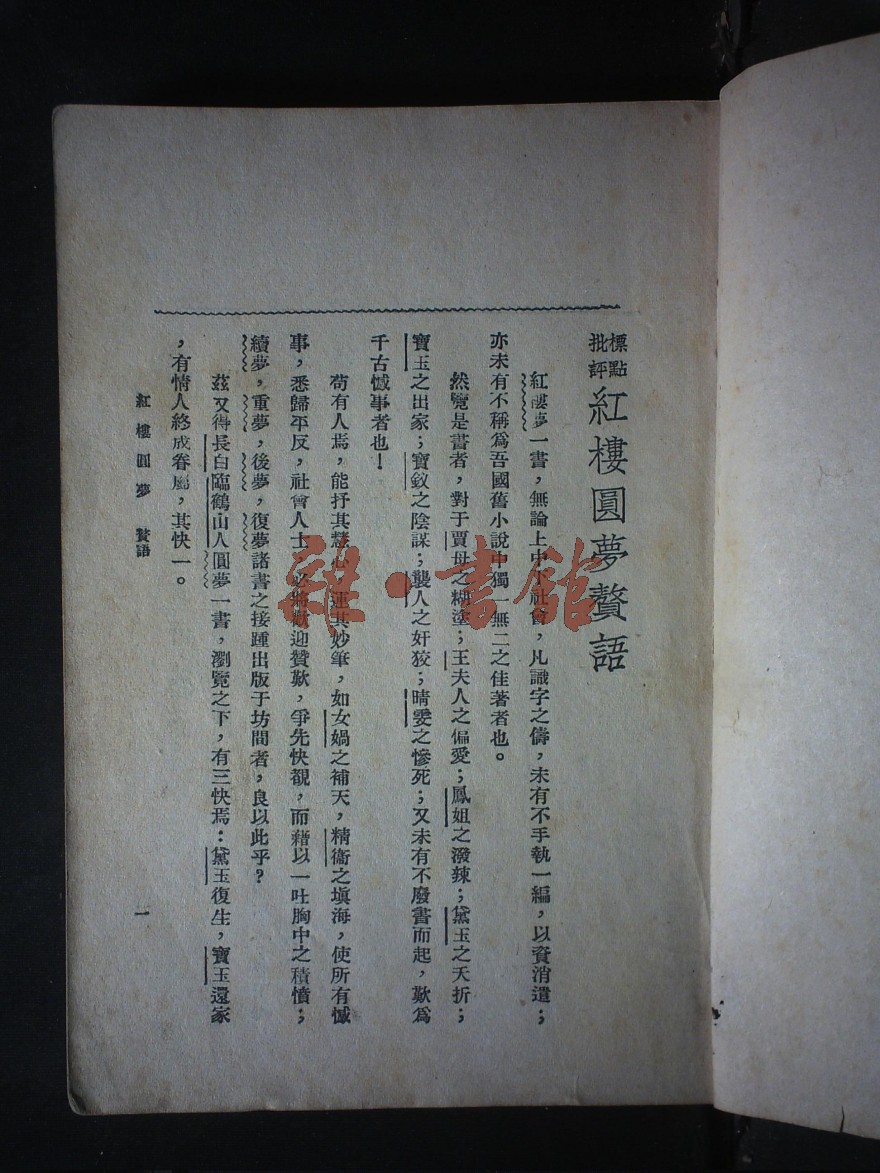 標點
批評
紅樓圓夢贅語
紅樓夢一書，無論上中下社會，凡識字之儔，未有不手執一編，以資消遣；
亦未有不稱爲吾國舊小說中獨一無二之佳著者也。
然覽是書者，對于賈母之糊塗；王夫人之偏愛；鳳姐之潑辣；黛玉之夭折；
寶玉之出家；寶釵之陰謀；襲人之奸狡；晴雯之慘死；又未有不廢書而起，歎爲
千古憾事者也！
苟有人焉，能抒其慧心，運其妙筆，如女媧之補天，精衞之塡海，使所有憾
事，悉歸平反，社會人士，必將歡迎贊歎，爭先快覩，而藉以一吐胸中之積憤；
續夢，重夢，後夢，復夢諸書之接踵出版于坊間者，良以此乎？
茲又得長白臨鶴山人圓夢一書，瀏覽之下，有三快焉：黛玉復生，寶玉還家
，有情人終成眷屬，其快一。
紅樓圓夢 贅語
一
雜·書館